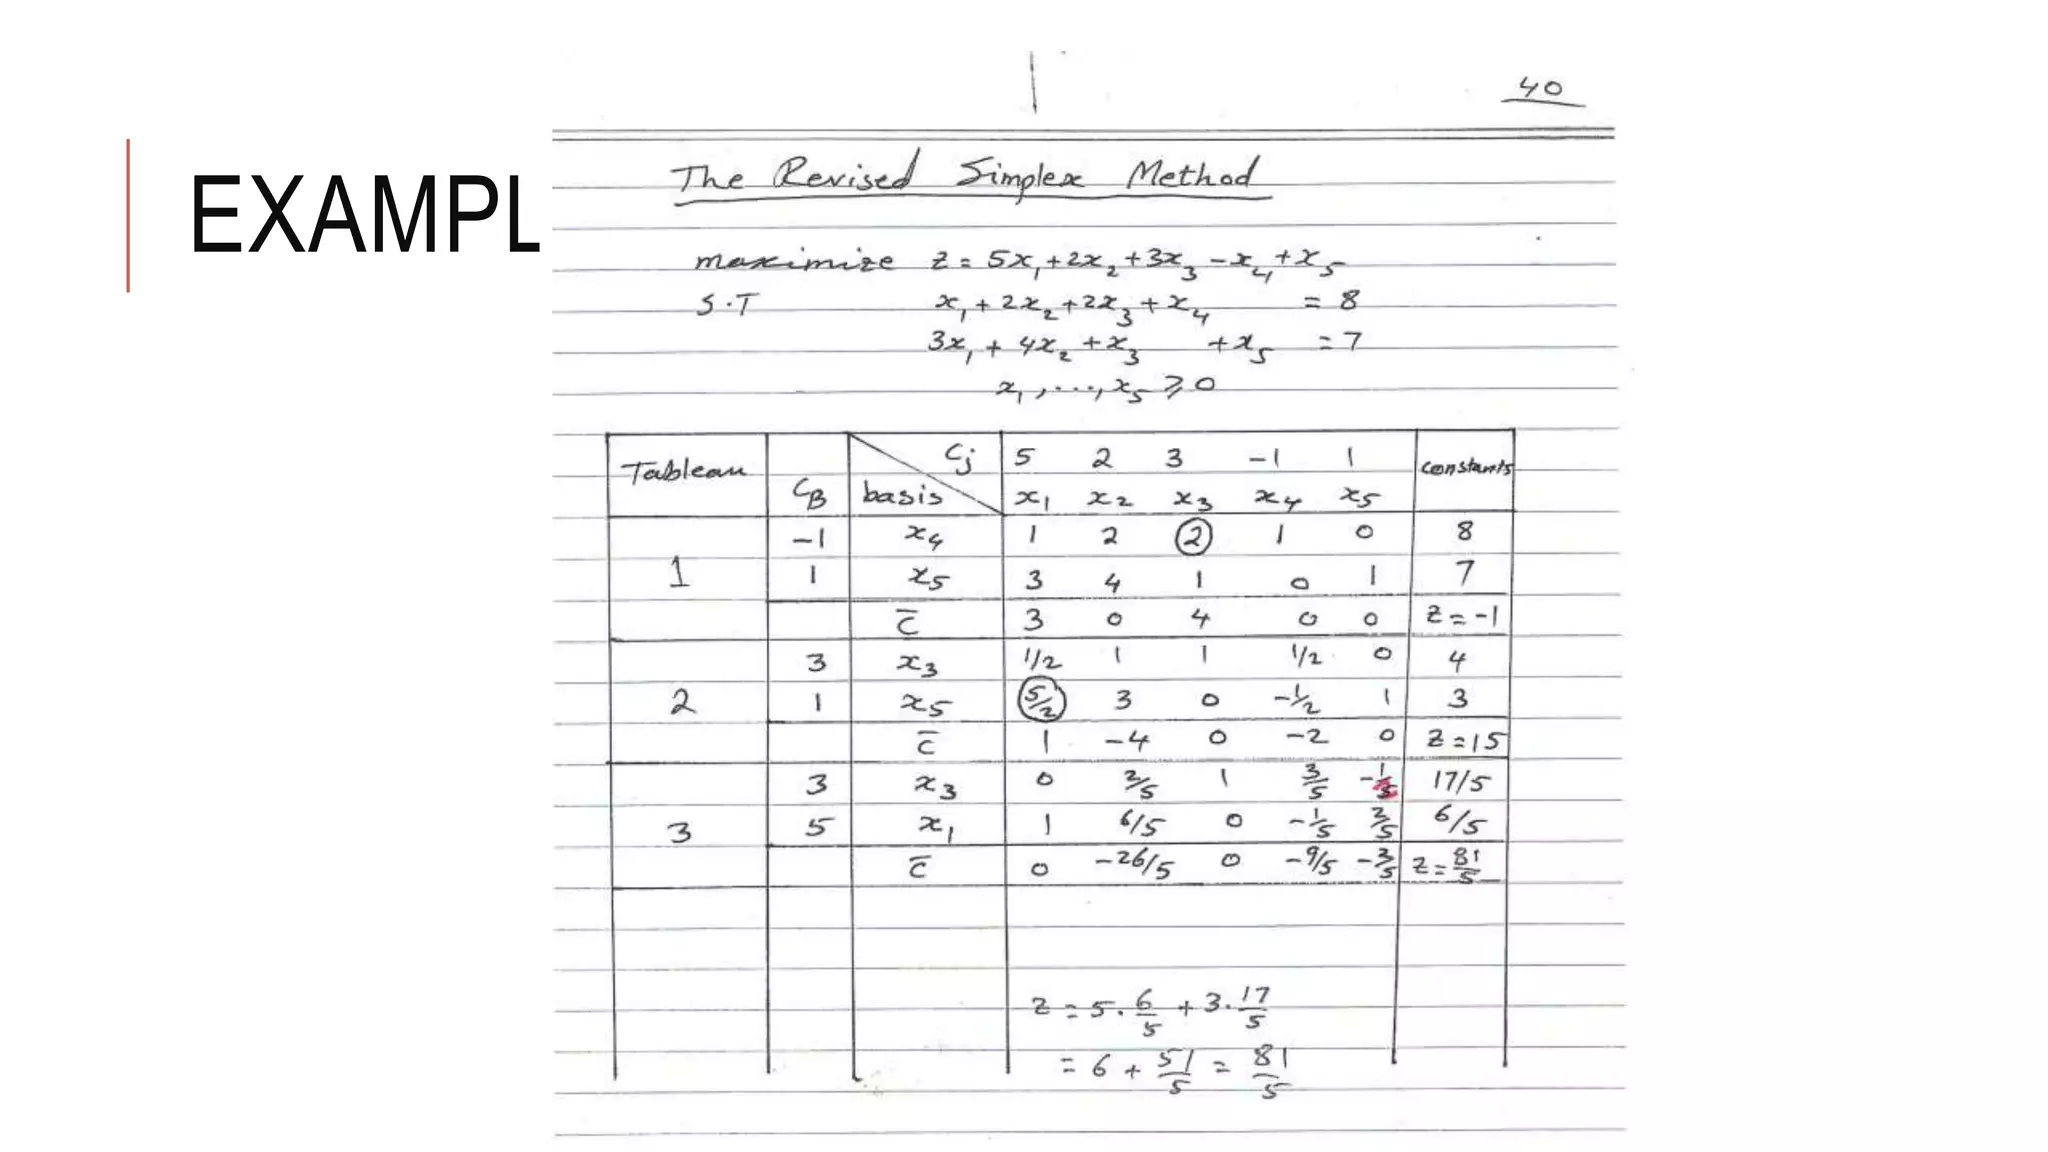 40
EXAMPL
The Revised Simplex Method
maximize z = 5x₁+2x₂+3x₃-x₄+x₅
S.T x₁+2x₂+2x₃+x₄ = 8
3x₁+4x₂+x₃ +x₅ = 7
x₁,...,x₅ ⩾ 0
Tableau C_B basis Cj 5 2 3 -1 1 constants
x₁ x₂ x₃ x₄ x₅
1 -1 x₄ 1 2 2 1 0 8
1 x₅ 3 4 1 0 1 7
c̄ 3 0 4 0 0 z=-1
2 3 x₃ 1/2 1 1 1/2 0 4
1 x₅ 5/2 3 0 -1/2 1 3
c̄ 1 -4 0 -2 0 z=15
3 3 x₃ 0 2/5 1 3/5 -1/5 17/5
5 x₁ 1 6/5 0 -1/5 2/5 6/5
c̄ 0 -26/5 0 -9/5 -2/5 z=81/5
z = 5.6/5 + 3.17/5
= 6 + 51/5 = 81/5